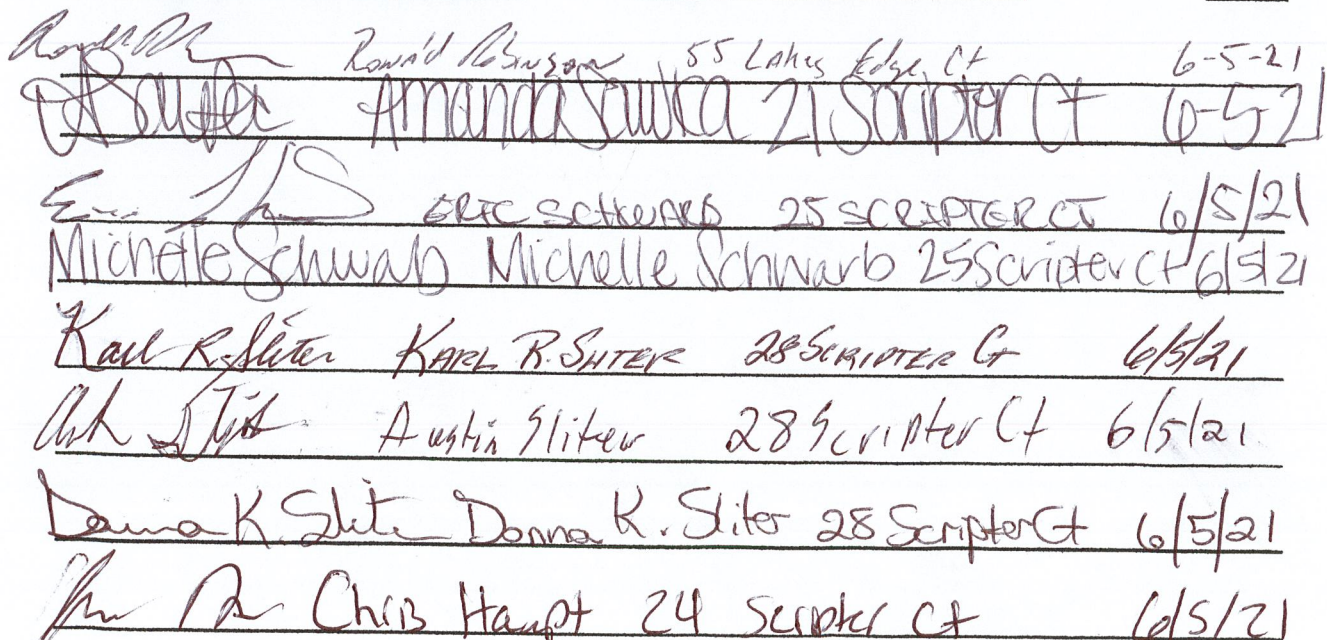 Ronald Robinson 55 Lakes Edge Ct 6-5-21
Amanda 21 Scripter Ct 6-5-21
Eric ERIC SCHWARB 25 SCRIPTER CT 6/5/21
Michelle Schwarb Michelle Schwarb 25 Scripter Ct 6/5/21
Karl R. Sliter KARL R. SLITER 28 SCRIPTER Ct 6/5/21
Austin Sliter 28 Scripter Ct 6/5/21
Donna K. Sliter Donna K. Sliter 28 Scripter Ct 6/5/21
Chris Haupt 24 Scripter Ct 6/5/21